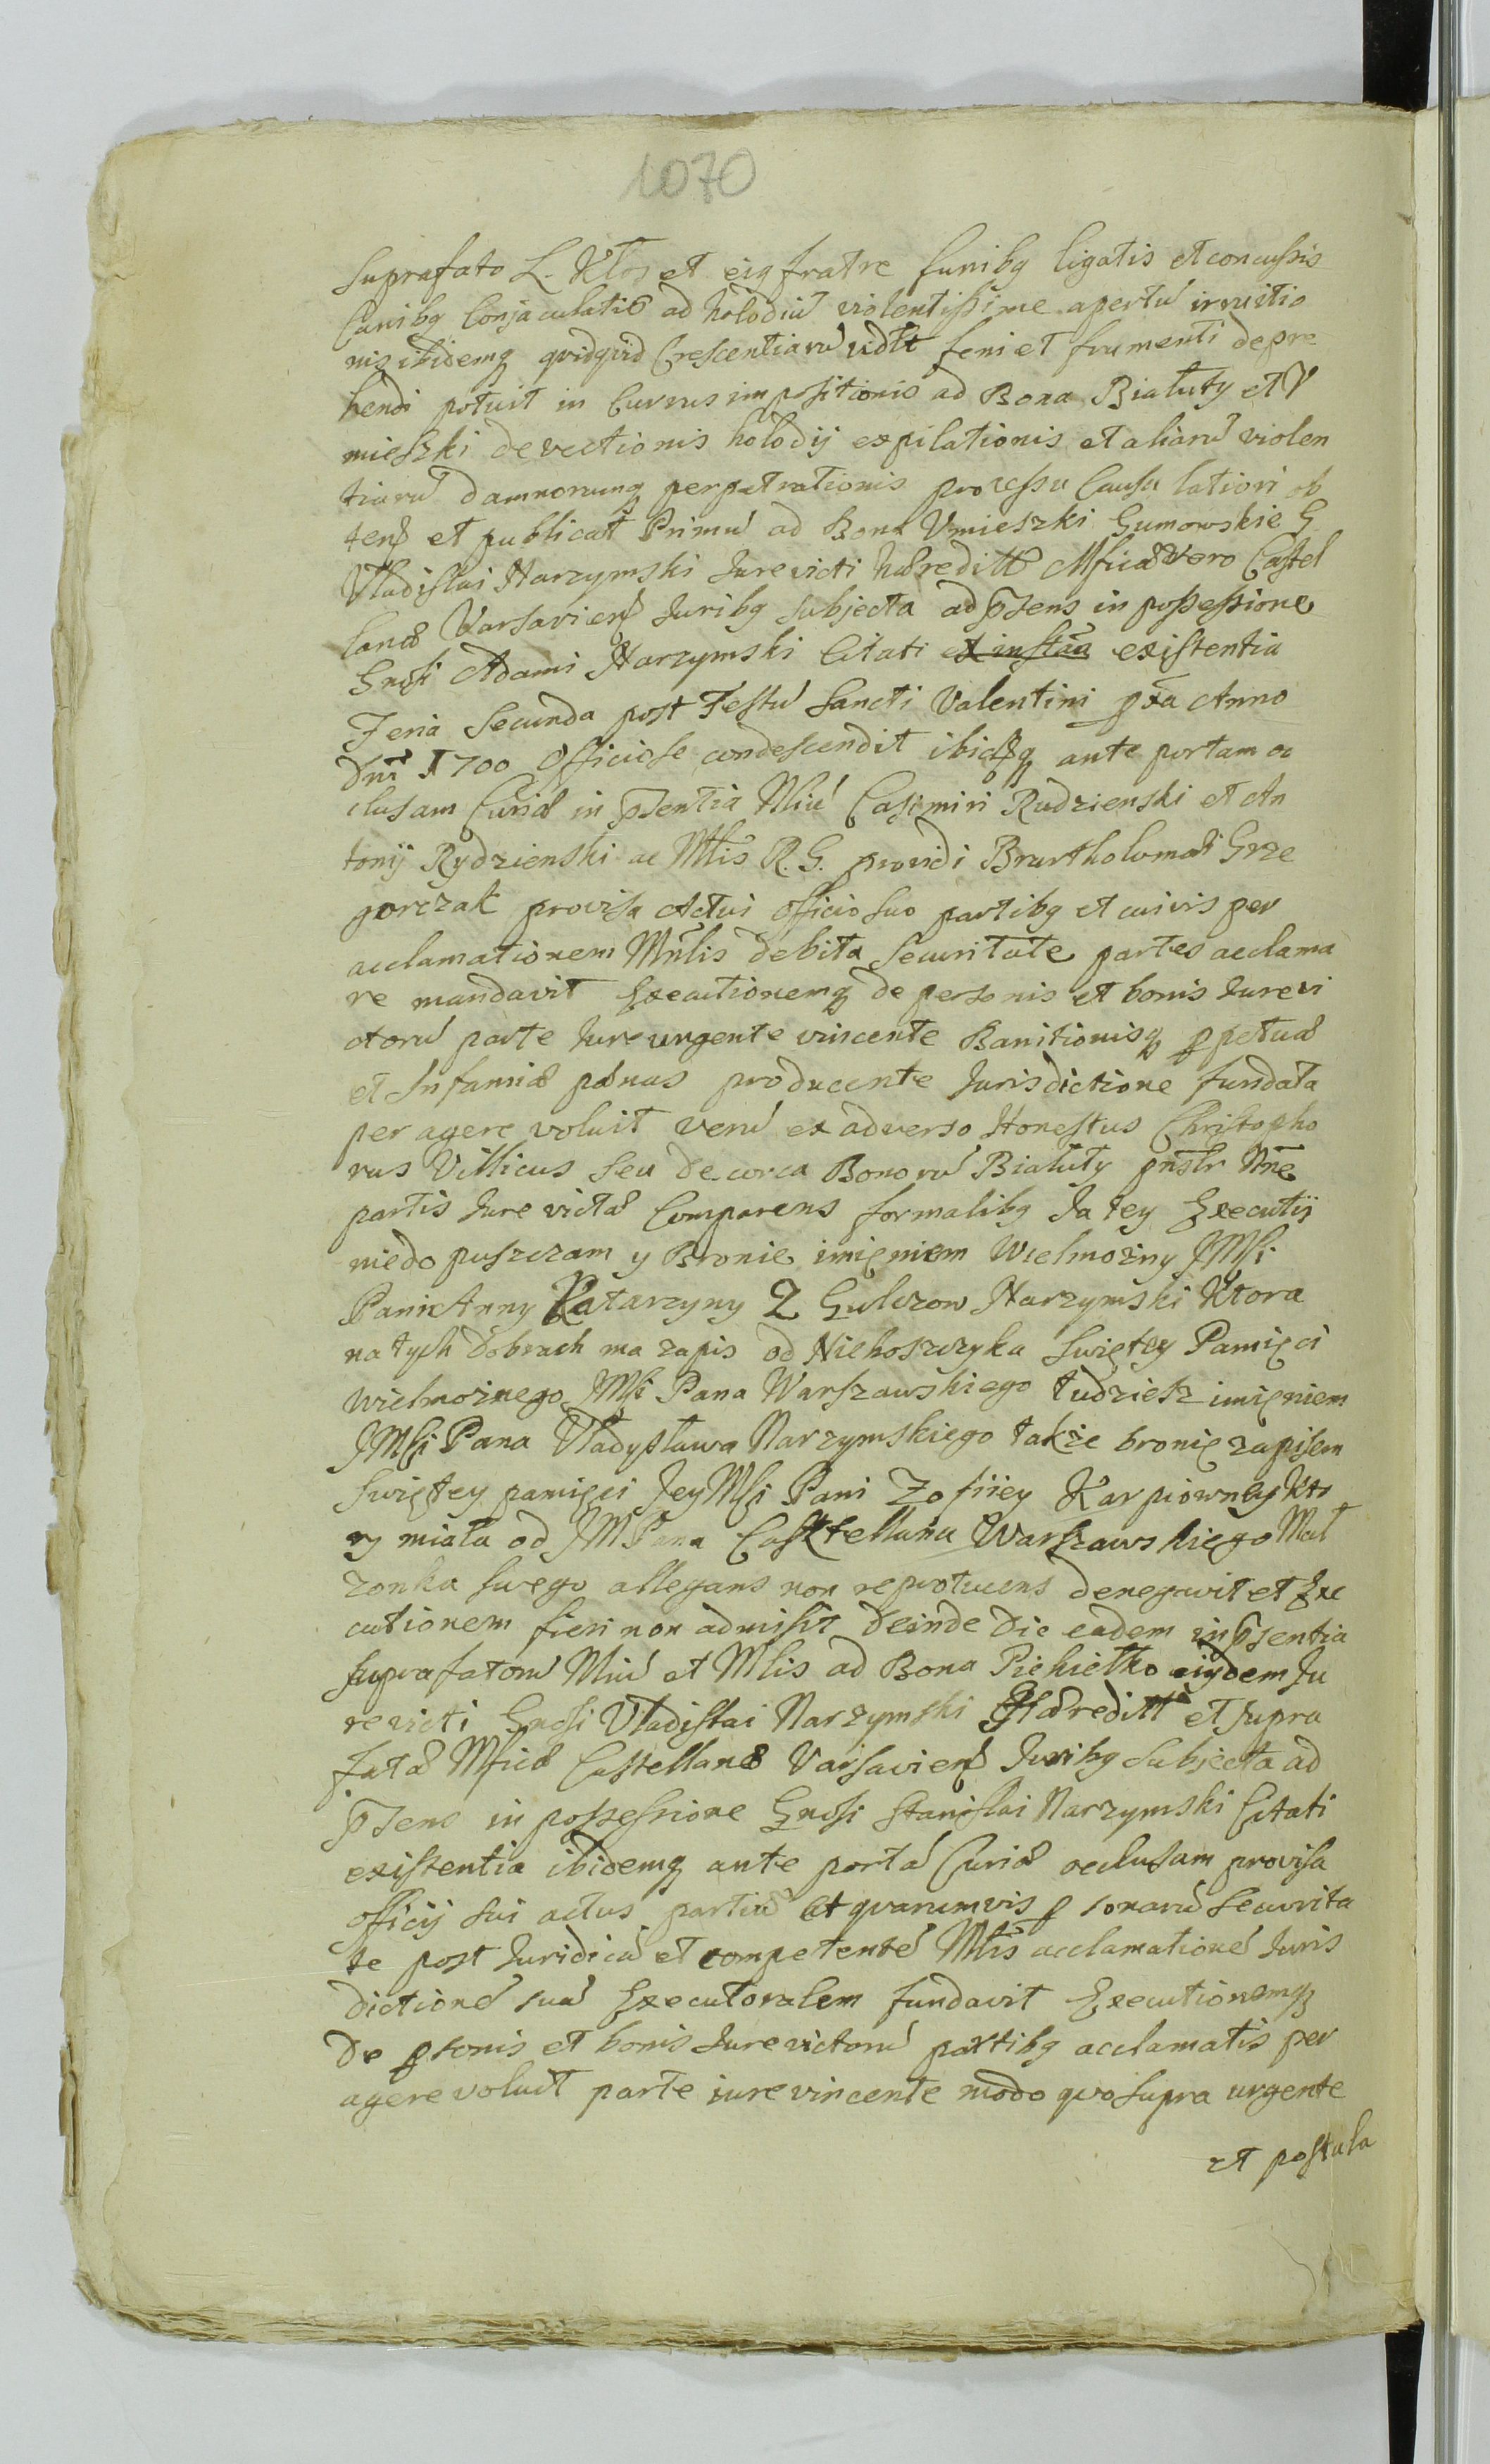 1070
suprafato L. Kłos et eiq fratre funibq ligatis et concussis
Canibq Conjaculatis ad holodiu violentissime apertu irruitio
nis ibidemq quidquid Crescentiaru vidlt feni et frumenti depre
hendi potuit in Currus impositionis ad Bona Białuty et V
mieszki devectionis holodij expilationis et aliaru violen
tiaru damnorumq perpetrationis processu Causa latiori ob
tens et publicat Primu ad Bona Vmieszki Gumowskie G
Vladislai Narzymski Jurevicti haereditt Mficae vero Castel
lanae Varsaviens Juribq subjecta ad psens in possessione
Gnsi Adami Narzymski Citati ex instan existentia
Feria Secunda post Festu Sancti Valentini pxa Anno
Dni 1700 Officiose condescendit ibidq ante portam oc
clusam Curiae in psentia Mliu Casimiri Rudzienski et An
tonij Rydzienski ac Mlis R. G. providi Brartholomaei Grze
gorczak provisa Actui Officio suo partibq et cuivis per
acclamationem Mnlis debita Securitate partes acclama
re mandavit Executionemq de personis et bonis Jurevi
ctoru parte Jure urgente vincente Banitionisq ppetuae
et Infamiae paenas producente Jurisdictione fundata
per agere voluit veru ex adverso Honestus Christopho
rus Villicus seu de curca Bonoru Białuty pnstr Nne
partis Jure victae Comparens formalibq Ja tey Executij
niedopuszczam y Bronie imięniem Wielmożny JMsi
Pani Anny Katarzyny Z Gulczow Narzymski Ktora
na tych Dobrach ma zapis od Nieboszczyka Swiętey Pamięci
wielmożnego JMsi Pana Warszawskiego tudziesz imięniem
JMsi Pana Vladysława Narzymskiego także bronię zapisem
Swiętey pamięci JeyMsi Pani Zofiiey Karpiowney kto
ry miała od JMPana Casztellana Warszawskiego Mał
zonka swego allegans non reproducens denegavit et Exe
cutionem fieri non admisit deinde die eadem in psentia
suprafatoru Mliu et Mlis ad Bona Piekiełko eiqdem Ju
revicti Gnosi Vladislai Narzymski Haereditt et supra
fatae Mficae Castellanae Varsaviens Juribq Subjecta ad
psens in possessione Gnosi Stanislai Narzymski Citati
existentia ibidemq ante porta Curiae occlusam provisa
officij sui actus partiu et quarumvis psonaru securita
te post Juridica et competente Mlis acclamatione Juris
dictione sua Executoralem fundavit Executionemq
de psonis et bonis Jurevictoru partibq acclamatis per
agere voluit parte iure vincente modo quo supra urgente
et postula